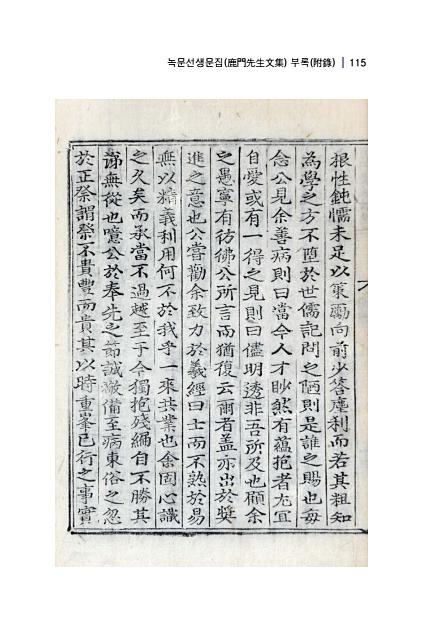 녹문선생문집(鹿門先生文集) 부록(附錄) | 115
根性鈍懦未足以策勵向前少答塵刹而若其粗知
為學之方不堕於世儒記問之陋則是誰之賜也每
念公見余善病則曰當今人才眇然有蘊抱者尤宜
自愛或有一得之見則曰儘明透非吾所及也顧余
之愚寧有彷彿公所言而猶復云爾者盖亦出於奬
進之意也公甞勸余致力於羲經曰士而不熟於易
無以精義利用何不於我乎一來共業也余固心識
之久矣而承當不過越至于今獨抱殘編自不勝其
無從也噫公於奉先之節誠敬備至病東俗之忽
於正祭謂祭不貴豊而貴其以時重峯已行之事實